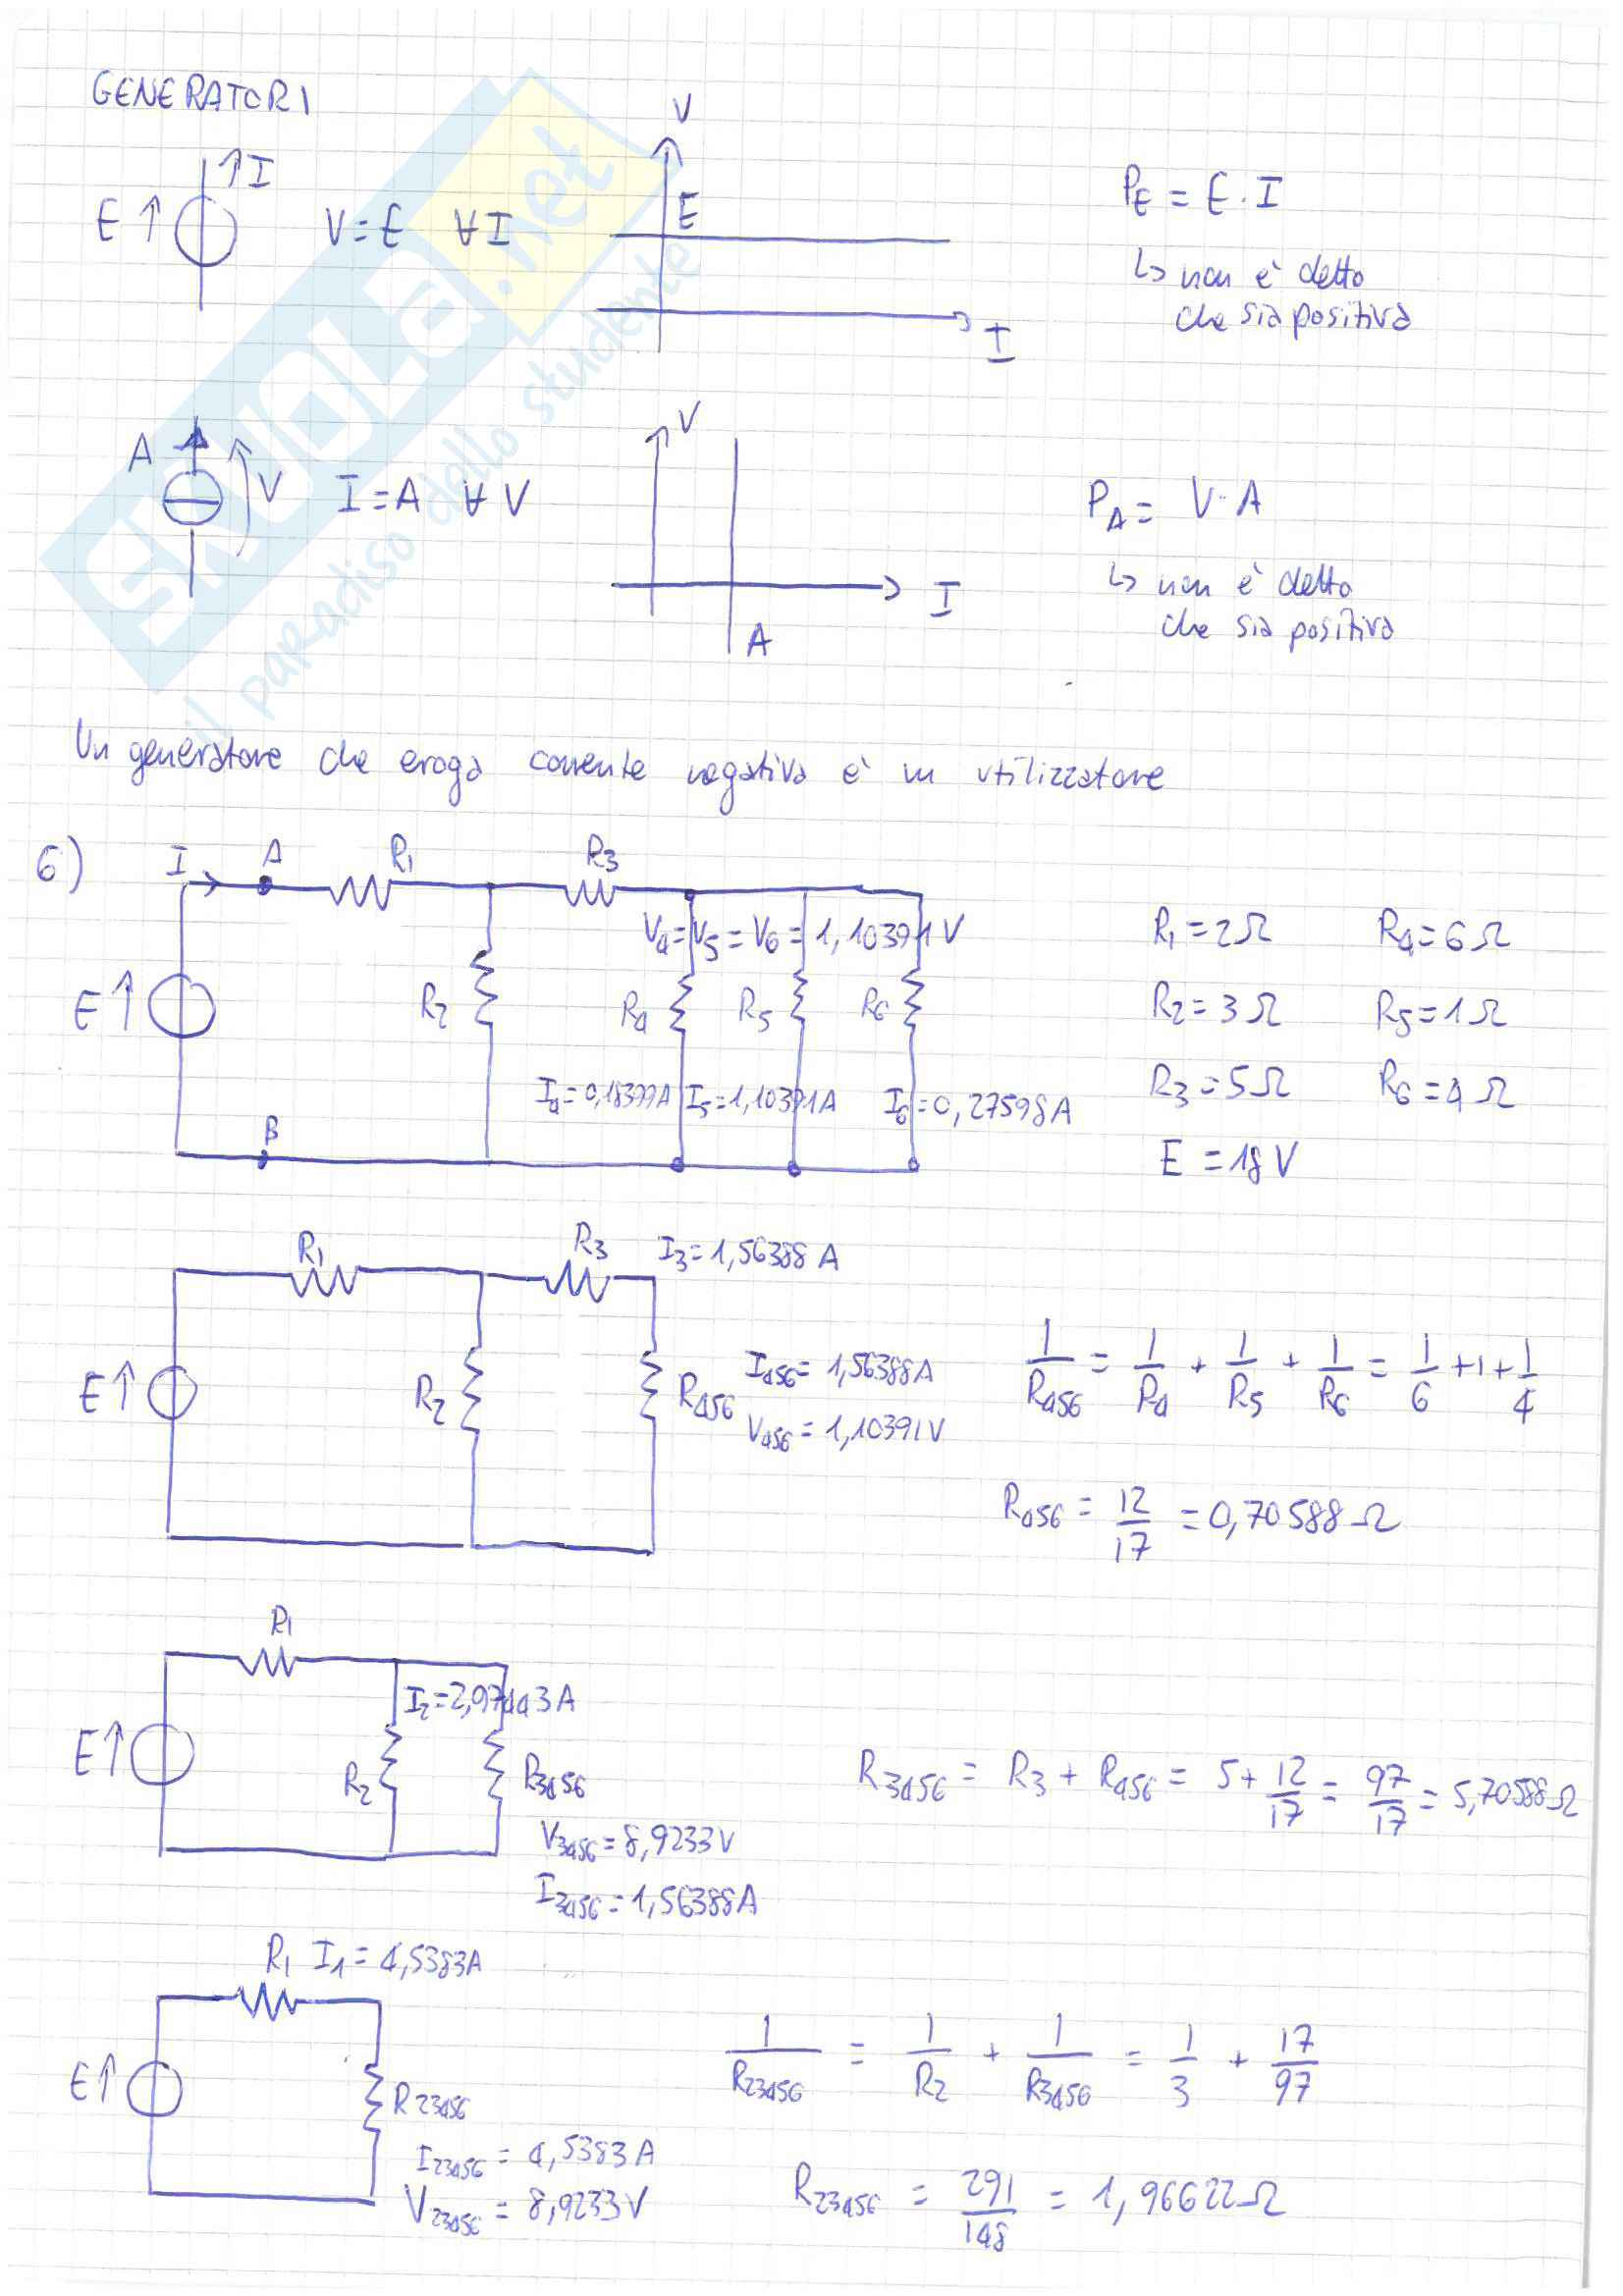 GENERATORI
E I V=E ∀I V E I P_E = E·I
↳ non è detto
che sia positiva
A V I=A ∀V V I A P_A = V·A
↳ non è detto
che sia positiva
SKUOLA.net
il paradiso dello studente
Un generatore che eroga corrente negativa è un utilizzatore
6) I A R1 R3
V4=V5=V6=1,10391V
E R2 R4 R5 R6
I4=0,18399A I5=1,10391A I6=0,27598A
B
R1=2Ω R4=6Ω
R2=3Ω R5=1Ω
R3=5Ω R6=4Ω
E=18V
R1 R3 I3=1,56388A
E R2 R456 I456=1,56388A
V456=1,10391V
1/R456 = 1/R4 + 1/R5 + 1/R6 = 1/6 + 1 + 1/4
R456 = 12/17 = 0,70588Ω
R1
I2=2,97443A
E R2 R3456
V3456=8,9233V
I3456=1,56388A
R3456 = R3 + R456 = 5 + 12/17 = 97/17 = 5,70588Ω
R1 I1=4,5383A
E R23456
I23456=4,5383A
V23456=8,9233V
1/R23456 = 1/R2 + 1/R3456 = 1/3 + 17/97
R23456 = 291/148 = 1,96622Ω